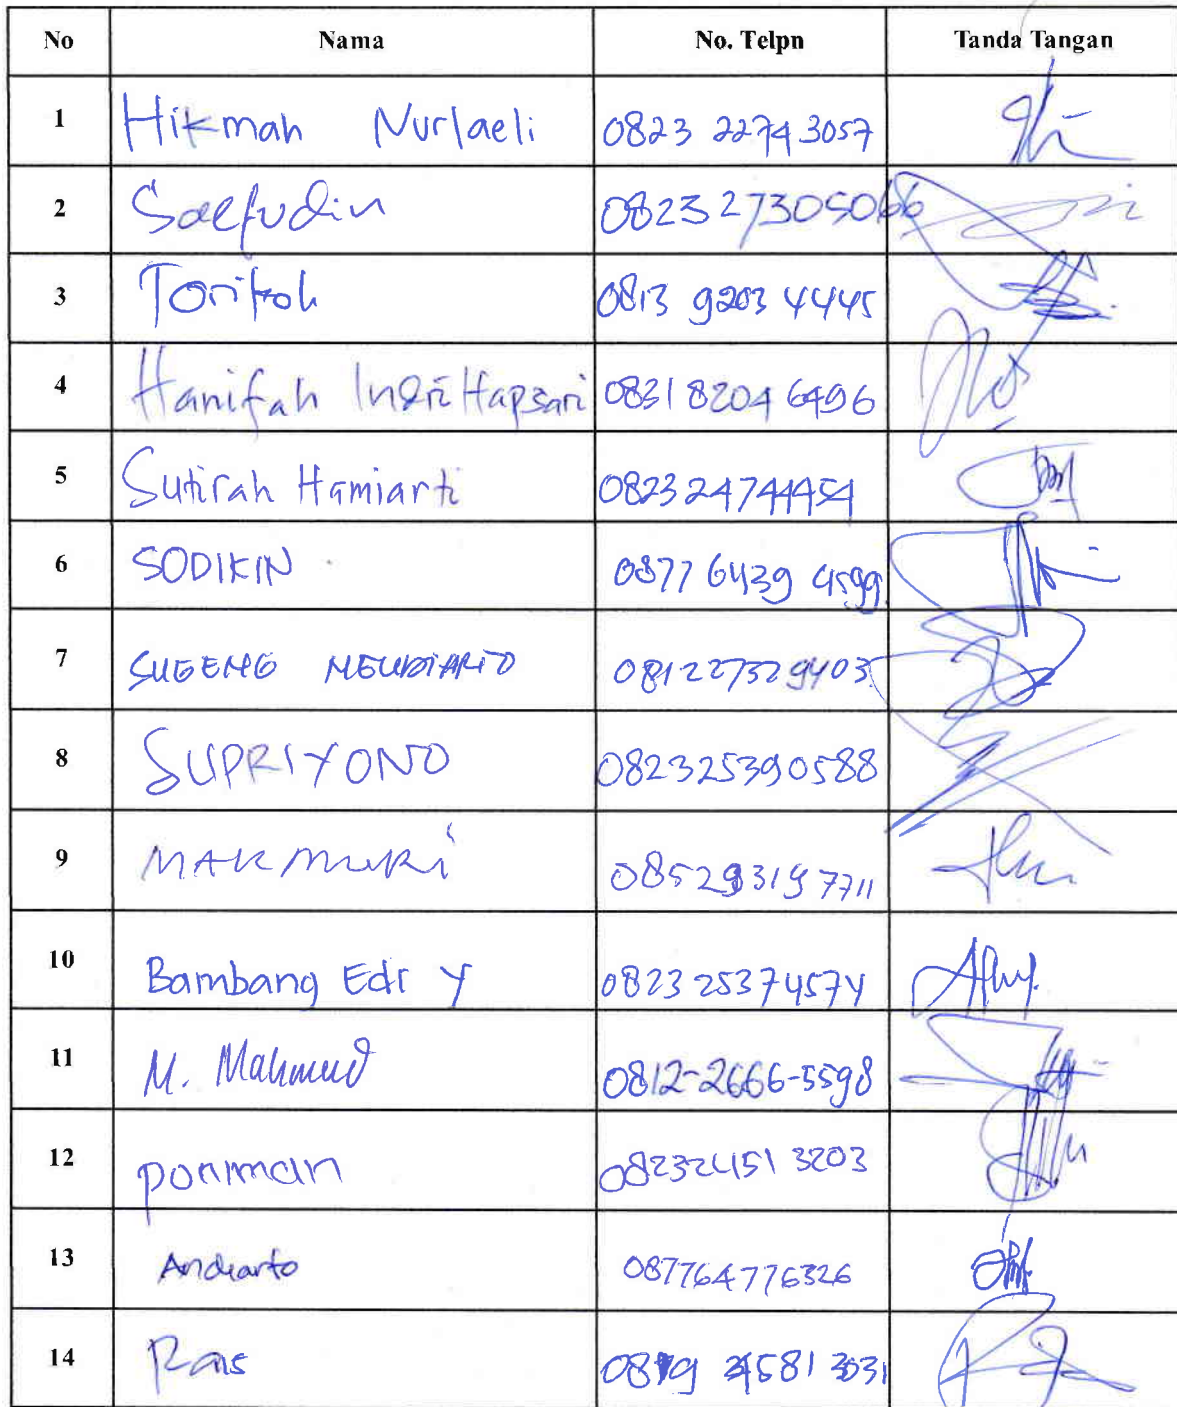 No Nama No. Telpn Tanda Tangan
1 Hikmah Nurlaeli 0823 2274 3057
2 Saefudin 0823 27305066
3 Torikoh 0813 9203 4445
4 Hanifah Indri Hapsari 0831 8204 6496
5 Sutirah Hamiarti 0823 24744454
6 SODIKIN 0877 6439 4599
7 SUGENG 081227329403
8 SUPRIYONO 082325390588
9 MAKMURI 085293197711
10 Bambang Edi Y 0823 25374574
11 M. Mahmud 0812-2666-5598
12 Ponman 08232451 3203
13 Andiarto 087764776326
14 Rais